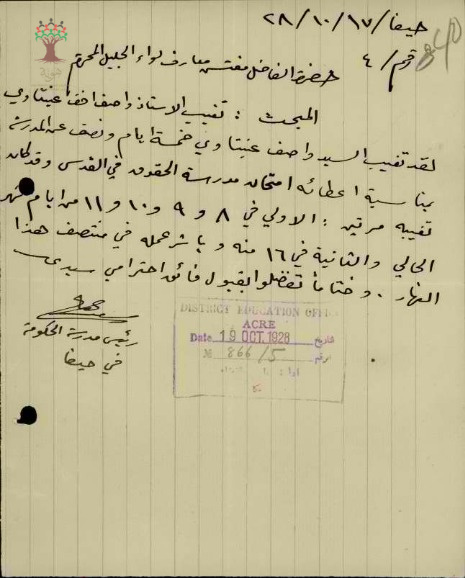 حيفا/ ١٧/ ١٠/ ٢٨
رقم/ ٤
840
حضرة الفاضل مفتش معارف لواء الجليل المحترم
المبحث : تغيب الاستاذ واصف افندي عبنتاوي
لقد تغيب السيد واصف عبنتاوي خمسة ايام ونصف عن المدرسة
بمناسبة اعطائه امتحان مدرسة الحقوق في القدس وقد كان
تغيبه مرتين : الاولى في ٨ و ٩ و ١٠ و ١١ من ايام شهر
الحالي والثانية في ١٦ منه وباشر عمله في منتصف هذا
النهار . وختاماً تفضلوا بقبول فائق احترامي سيدي
رئيس مدرسة الحكومة
في حيفا
DISTRICT EDUCATION OFFICE
ACRE
Date 19 OCT. 1928 تاريخ
№ 866/5 رقم